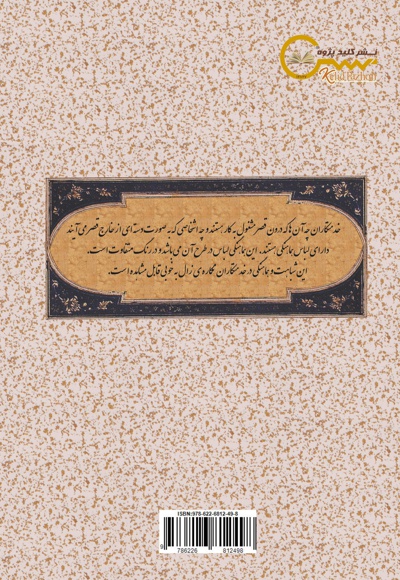 نشر کلید پژوه
Kelid Pezhouh
خدمتکاران چه آن ها که درون قصر مشغول به کار هستند و چه اشخاصی که به صورت دسته ای از خارج قصر می آیند
دارای لباس هماهنگی هستند. این هماهنگی لباس در طرح آن می باشد و در رنگ متفاوت است.
این شباهت و هماهنگی در خدمتکاران نگاره ی زال به خوبی قابل مشاهده است.
ISBN:978-622-6812-49-8
9 786226 812498